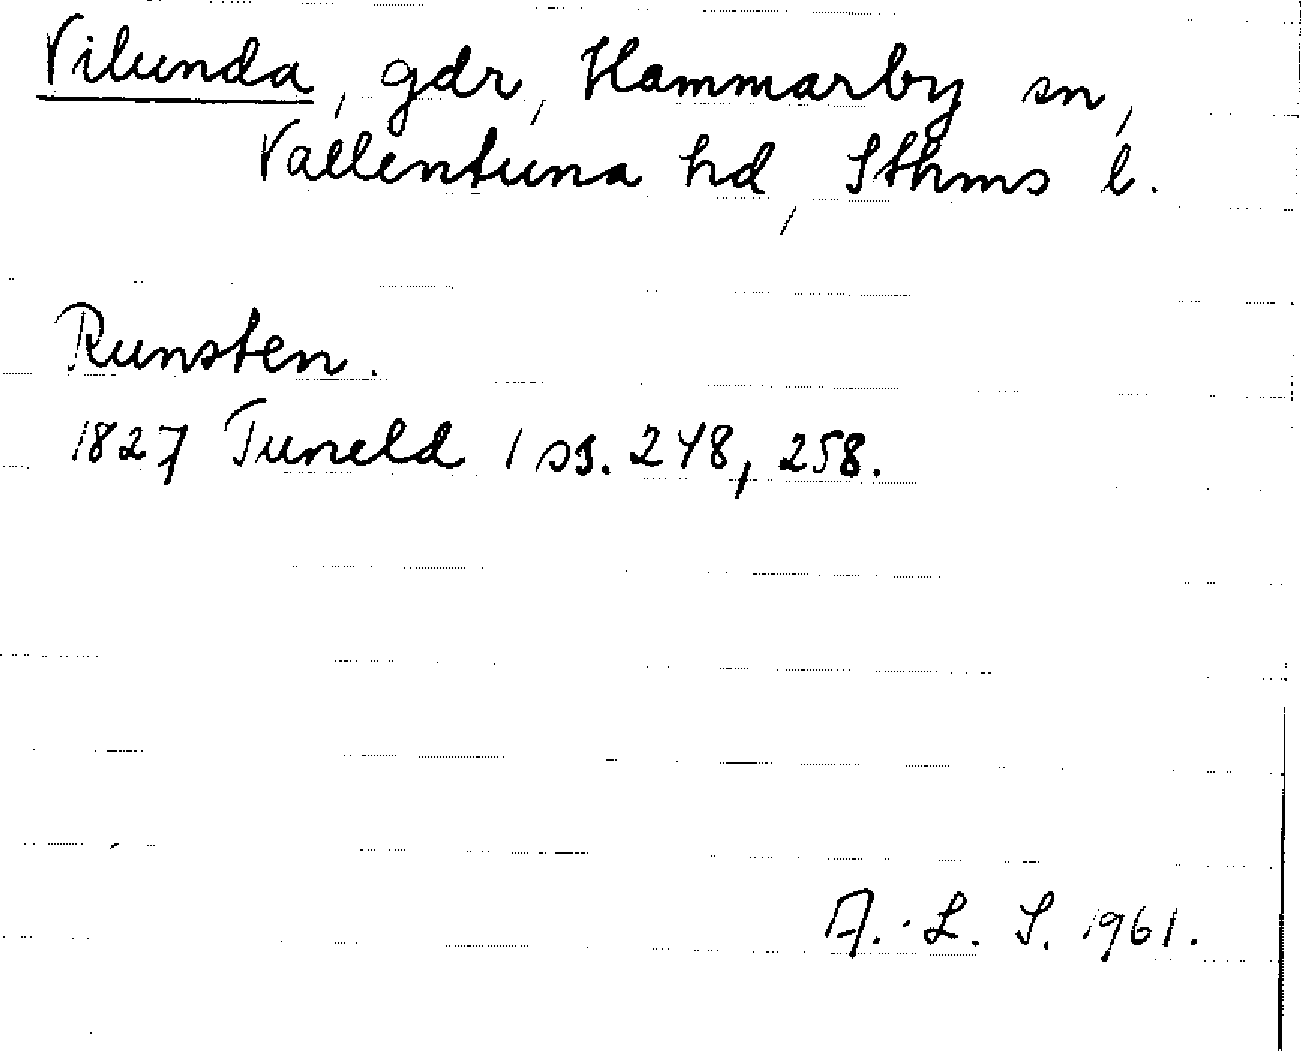 Vilunda, gdr, Hammarby sn,
Vallentuna hd, Sthms l.
Runsten.
1827 Tuneld 1 ss. 248, 258.
A.-L. S. 1961.